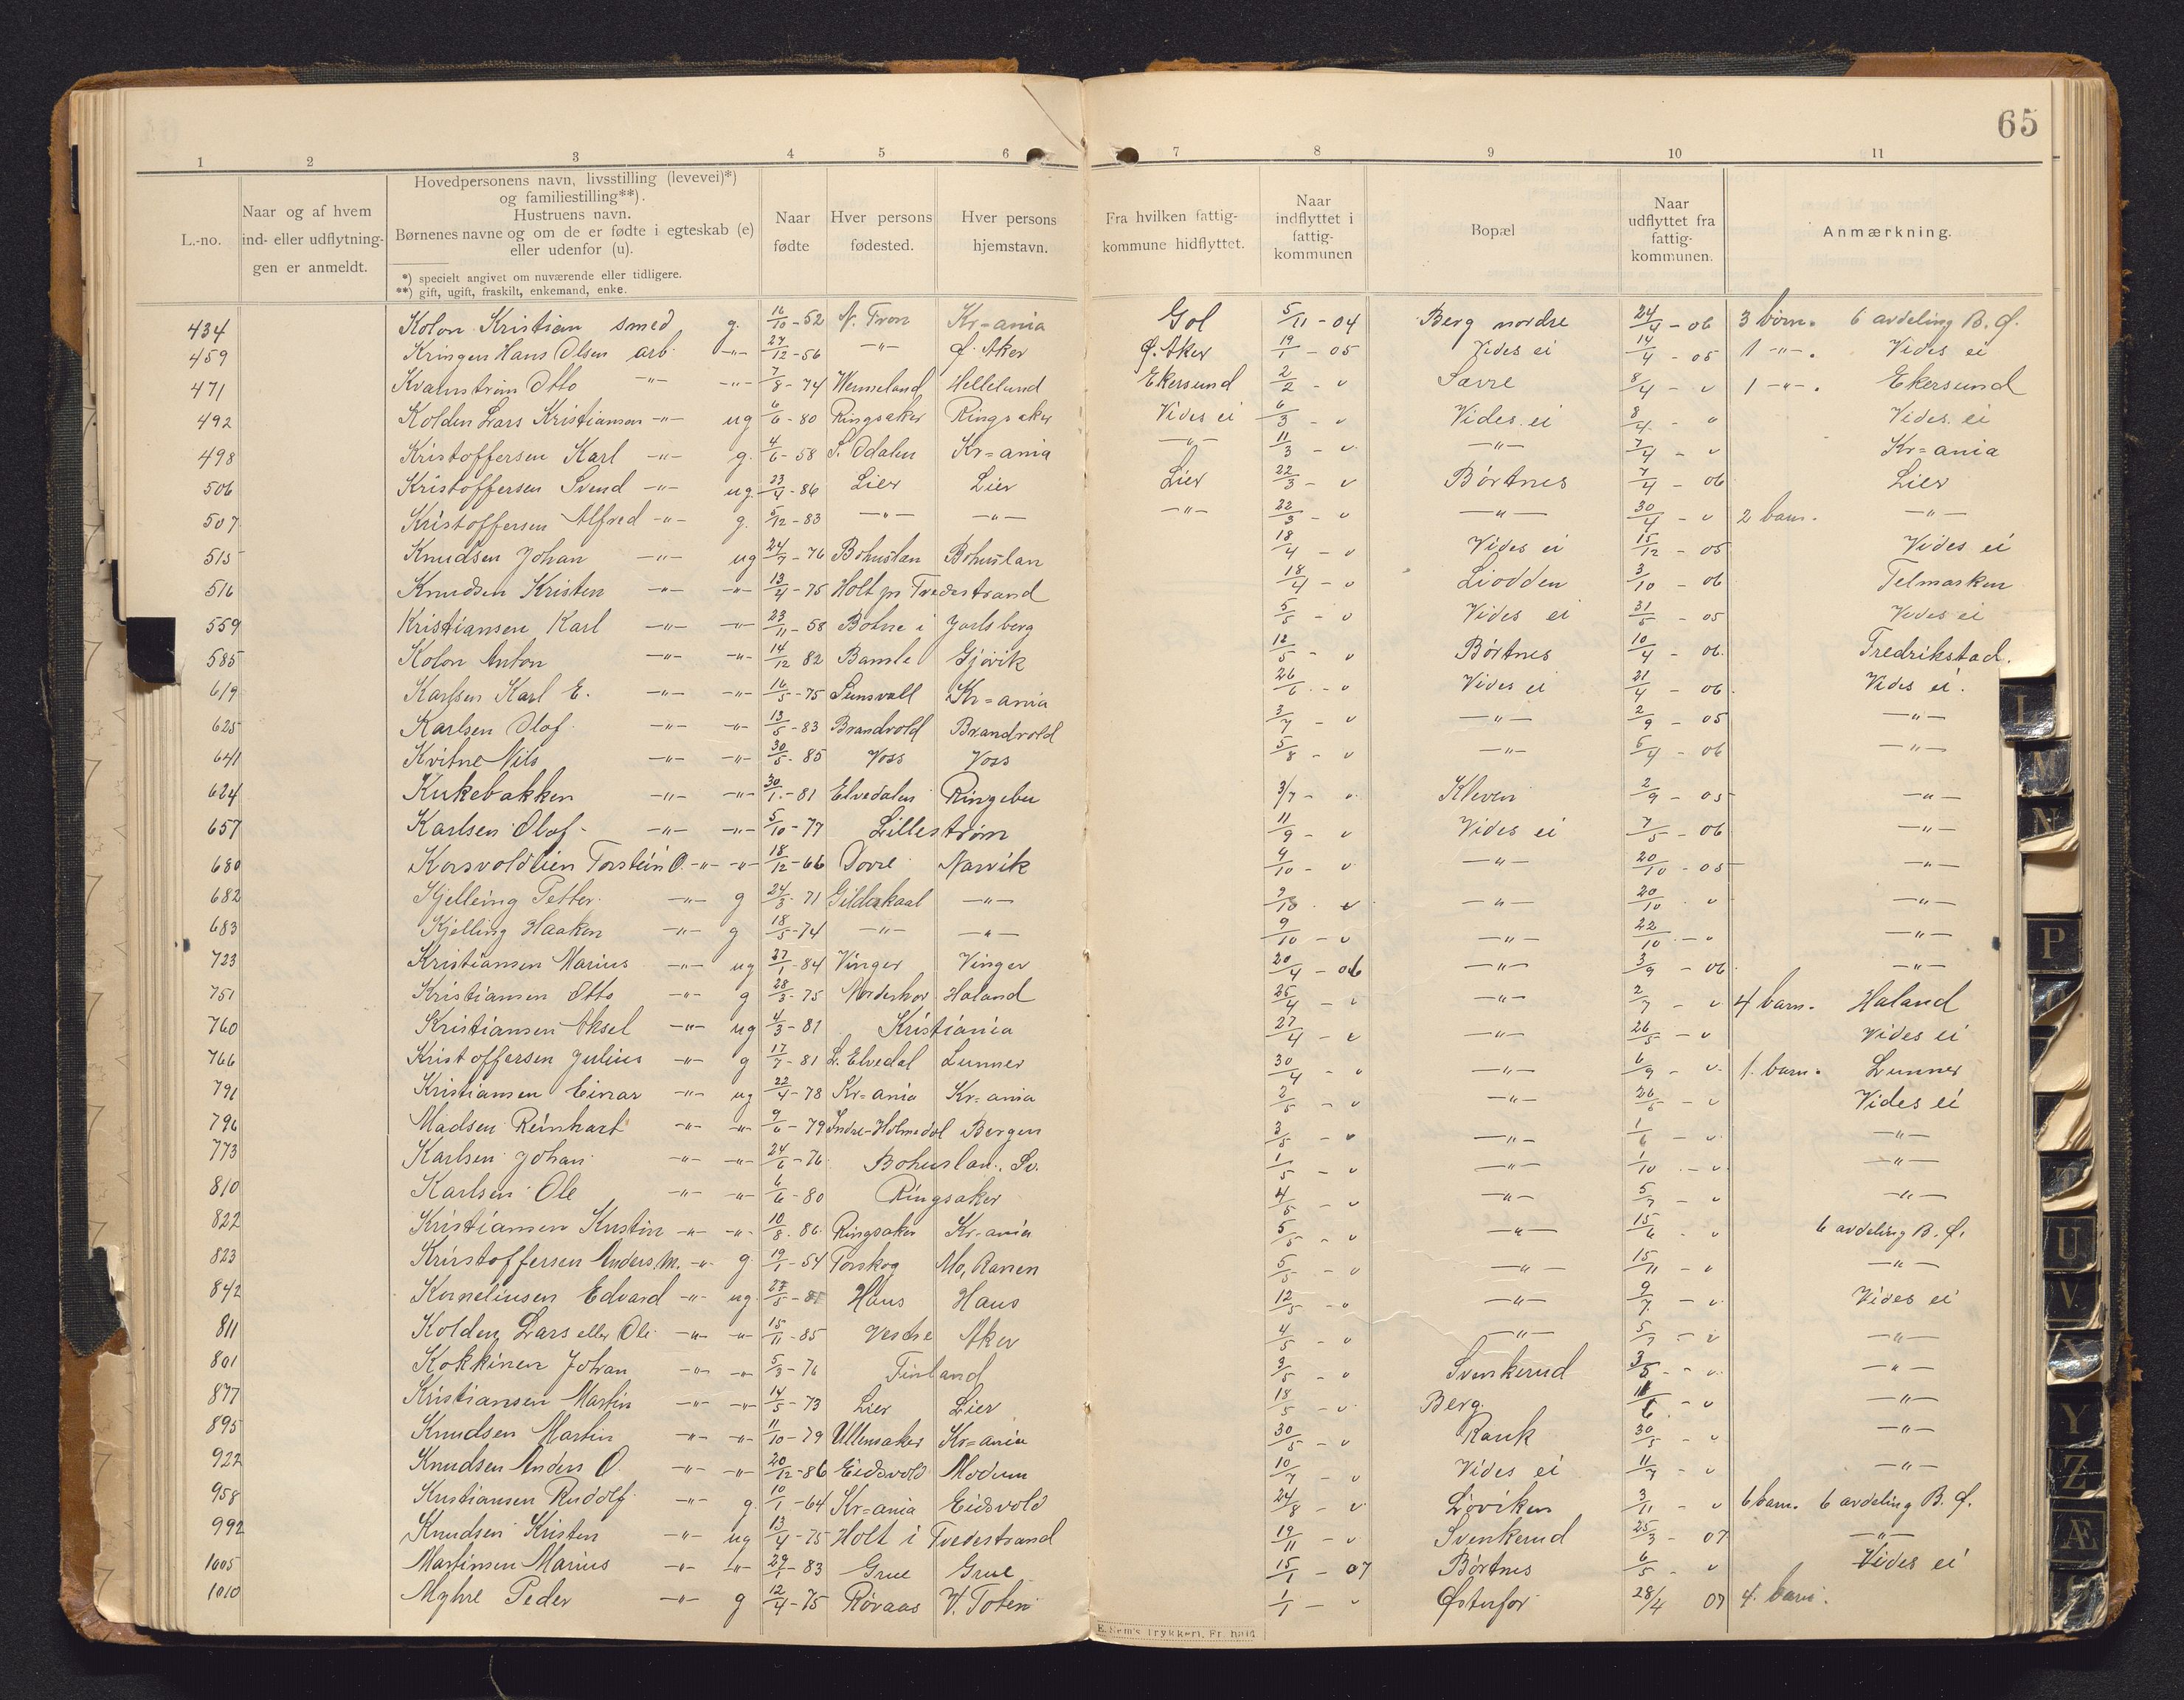 65
1 2 3 4 5 6 7 8 9 10 11
L.-no.
Naar og af hvem ind- eller udflytningen er anmeldt.
Hovedpersonens navn, livsstilling (levevei)*) og familiestilling**).
Hustruens navn.
Børnenes navne og om de er fødte i egteskab (e) eller udenfor (u).
*) specielt angivet om nuværende eller tidligere.
**) gift, ugift, fraskilt, enkemand, enke.
Naar fødte
Hver persons fødested.
Hver persons hjemstavn.
Fra hvilken fattigkommune hidflyttet.
Naar indflyttet i fattigkommunen
Bopæl
Naar udflyttet fra fattigkommunen.
Anmærkning.
434 Kolon Kristian smed g. 16/10-52 N. Fron Kr=ania Gol 5/11-04 Berg nordre 24/4-06 3 børn. 6 avdeling B. Ø.
459 Kringen Hans Olsen arb. -"- 27/12-56 -"- Ø. Aker Ø. Aker 19/1-05 Vides ei 14/4-05 1 -"-. Vides ei
471 Kvalmstrøm Otto -"- -"- 7/8-74 Wermeland Hellelund Ekersund 2/2-" Savre 8/4-" 1 -"-. Ekersund
492 Kolden Lars Kristiansen -"- ug 6/6-80 Ringsaker Ringsaker Vides ei 6/3-" Vides ei 8/4-" Vides ei
498 Kristoffersen Karl -"- g. 4/6-58 S. Odalen Kr=ania -"- 11/3-" -"- 7/4-" Kr=ania
506 Kristoffersen Svend -"- ug. 23/4-86 Lier Lier Lier 22/3-" Børtnes 7/4-06 Lier
507 Kristoffersen Alfred -"- g. 5/12-83 -"- -"- -"- 22/3-" -"- 30/4-" 2 barn. -"-
515 Knudsen Johan -"- ug 24/7-76 Bohuslan Bohuslan 18/4-" Vides ei 15/12-05 Vides ei
516 Knudsen Kristen -"- -"- 13/4-75 Holt pr Tvedestrand 18/4-" Liodden 3/10-06 Telmarken
559 Kristiansen Karl -"- -"- 23/11-58 Botne i Jarlsberg 5/5-" Vides ei 31/5-05 Vides ei
585 Kolon Anton -"- -"- 14/12 82 Bamle Gjøvik 12/5-" Børtnes 10/4-06. Fredrikstad.
619 Karlsen Karl E. -"- -"- 16/5-75 Sunsvall Kr=ania 26/6-" Vides ei 21/4-06 Vides ei.
625 Karlsen Olof -"- -"- 13/5-83 Brandvold Brandvold 3/7-" -"- 2/9-05 -"-
641 Kvitne Nils -"- -"- 30/5-85 Voss Voss 5/8-" -"- 5/4-06 -"-
624 Kukebakken -"- -"- 30/1-81 Elvedalen Ringebu 3/7-" Kleven 2/9-05 -"-
657 Karlsen Olof -"- -"- 5/10-77 Lillestrøm 11/9-" Vides ei 7/5-06 -"-
680 Korsvoldlien Torstein O. -"- -"- 18/12-66 Dovre Narvik 9/10-" -"- 20/10-05 -"-
682 Kjelleing Petter -"- g 24/3-71 Gildeskaal -"- 9/10-" -"- 20/10 " -"-
683 Kjelling Haaken -"- g 18/5-74 -"- -"- 9/10-" -"- 22/10-" -"-
723 Kristiansen Marius -"- ug 27/1-84 Vinger Vinger 20/4-06 -"- 3/9-06 -"-
751 Kristiansen Otto -"- g 28/3-75 Norderhov Haland 25/4-" -"- 2/7-" 4 barn. Haland
760 Kristiansen Aksel -"- ug 4/3-81 Kristiania 27/4-" -"- 26/5-" Vides ei
766 Kristoffersen Julius -"- g 17/7-81 L. Elvedal Lunner 30/4-" -"- 6/9-" 1. barn. Lunner
791 Kristiansen Einar -"- ug 22/4-78 Kr=ania Kr=ania 2/5-" -"- 26/5-" Vides ei
796 Madsen Reinhart -"- -"- 9/6-79 Indre-Holmedal Bergen 3/5-" -"- 1/6-" -"-
773 Karlsen Johan -"- -"- 24/6-76 Bohuslan. Sv. 1/5-" -"- 1/10-" -"-
810 Karlsen Ole -"- -"- 6/6-80 Ringsaker 4/5-" -"- 5/7-" -"-
822 Kristiansen Kristin -"- -"- 10/8-86. Ringsaker Kr=ania 5/5-" -"- 15/6 " 6 avdeling B. Ø.
823 Kristoffersen Anders M. -"- g. 19/1-54 Torskog Mo, Ranen 5/5-" -"- 15/11-" -"-
842 Korneliusen Edvard -"- ug. Haus Haus 12/5-" -"- 9/7-" Vides ei
811 Kolden Lars eller Ole -"- -"- 15/11-85 Vestre Aker 4/5-" -"- 5/7-" -"-
801 Kokkinen Johan -"- -"- 5/3-76 Finland 3/5-" Svenkerud 3/5-" -"-
877 Kristiansen Martin -"- -"- 14/5-73 Lier Lier 18/5-" Berg -"-
895 Knudsen Martin -"- -"- 11/10-79 Ullensaker Kr=ania 30/5-" Rauk 30/5-" -"-
922 Knudsen Anders O. -"- -"- 20/12-86 Eidsvold Modum 10/7-" Vides ei 11/7-" -"-
958 Kristiansen Rudolf -"- g. 10/1-64 Kr=ania Eidsvold 24/8-" Liøviken 3/11-" 6 barn. 6 avdeling B. Ø.
992 Knudsen Kristen -"- ug 13/4-75 Holt i Tvedestrand 19/11-" Svenkerud 25/3-07 -"-
1005 Martinsen Marius -"- -"- 83 Grue Grue 15/1-07 Børtnes 6/5-" Vides ei
1010 Myhre Peder -"- g 12/4-75 Røraas V. Toten 1/1-" Østerfor 28/4 07 4. barn.
E. Sem's Trykkeri, Fr.hald.
L
M
N
P
T
U
V
X
Y
Z
Æ
Ø